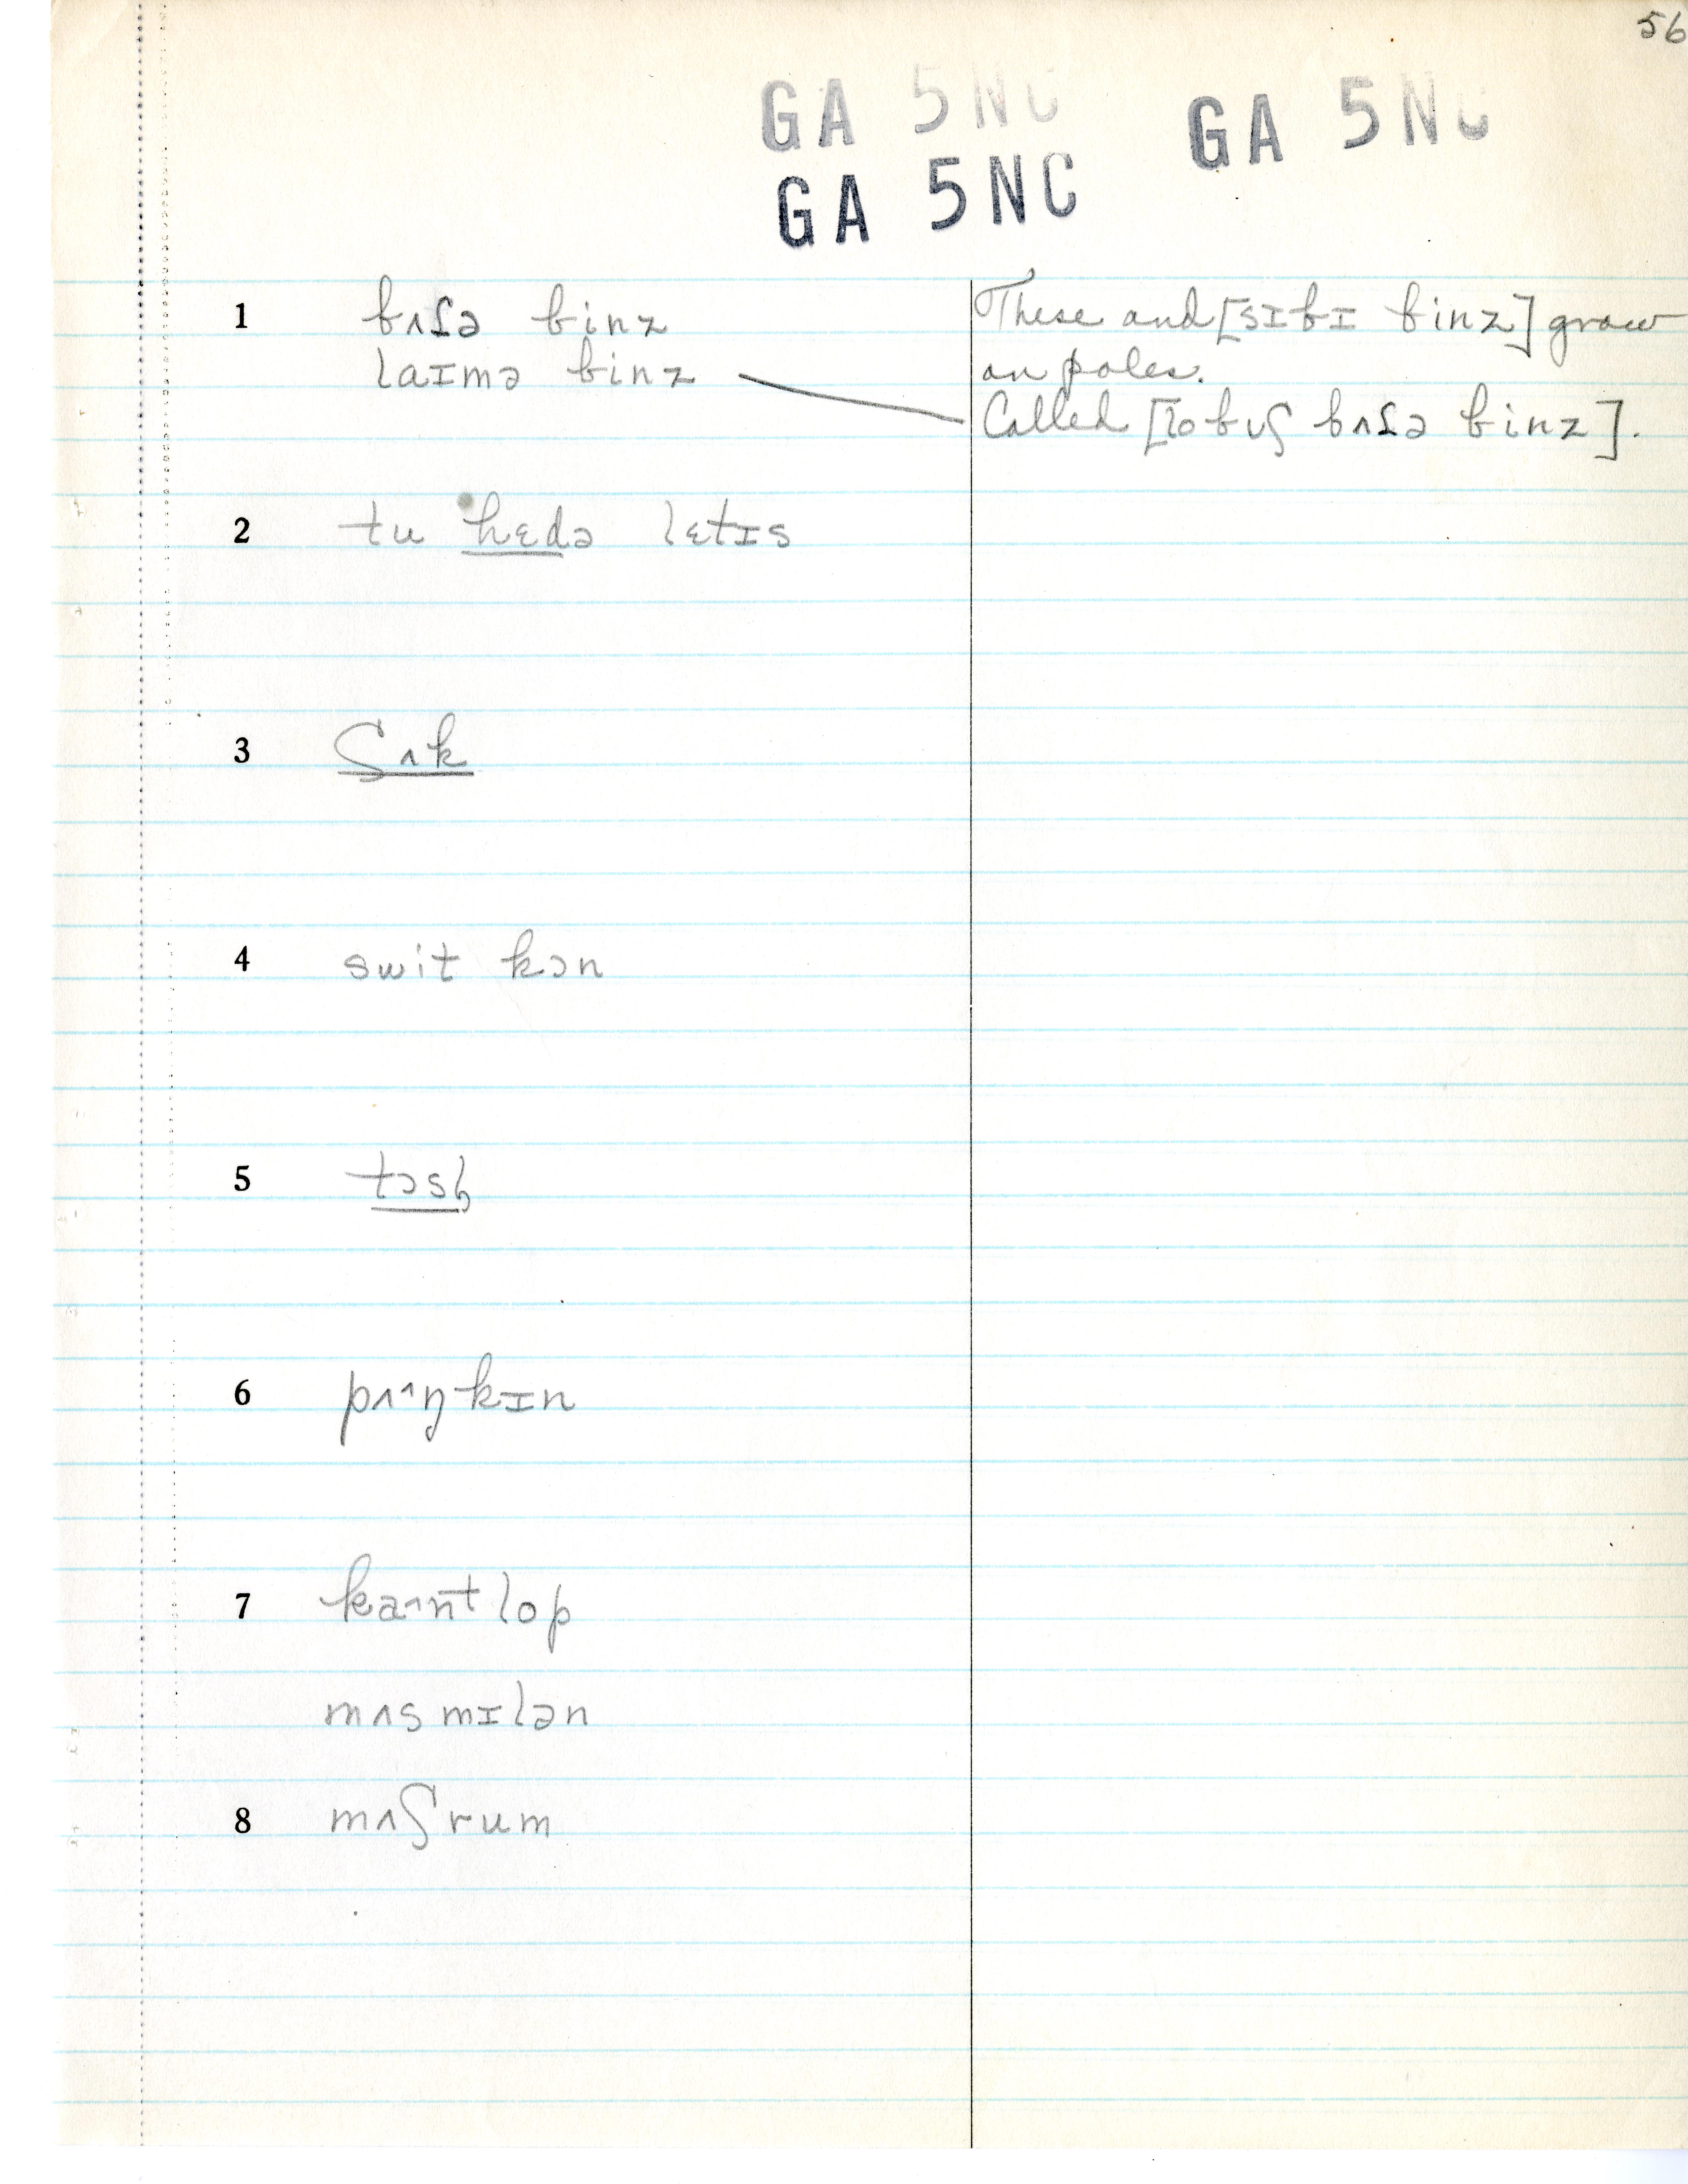 56
GA 5NC GA 5NC
GA 5NC
1 bʌɾə binz These and [sɪbɪ binz] grow
laɪmə binz on poles.
Called [lobuʃ bʌɾə binz].
2 tu hɛdə lɛtɪs
3 ʃʌk
4 swit kɔn
5 tɔsl̩
6 pʌ^ŋkɪn
7 ka^nt lop
mʌs mɪlən
8 mʌʃrum